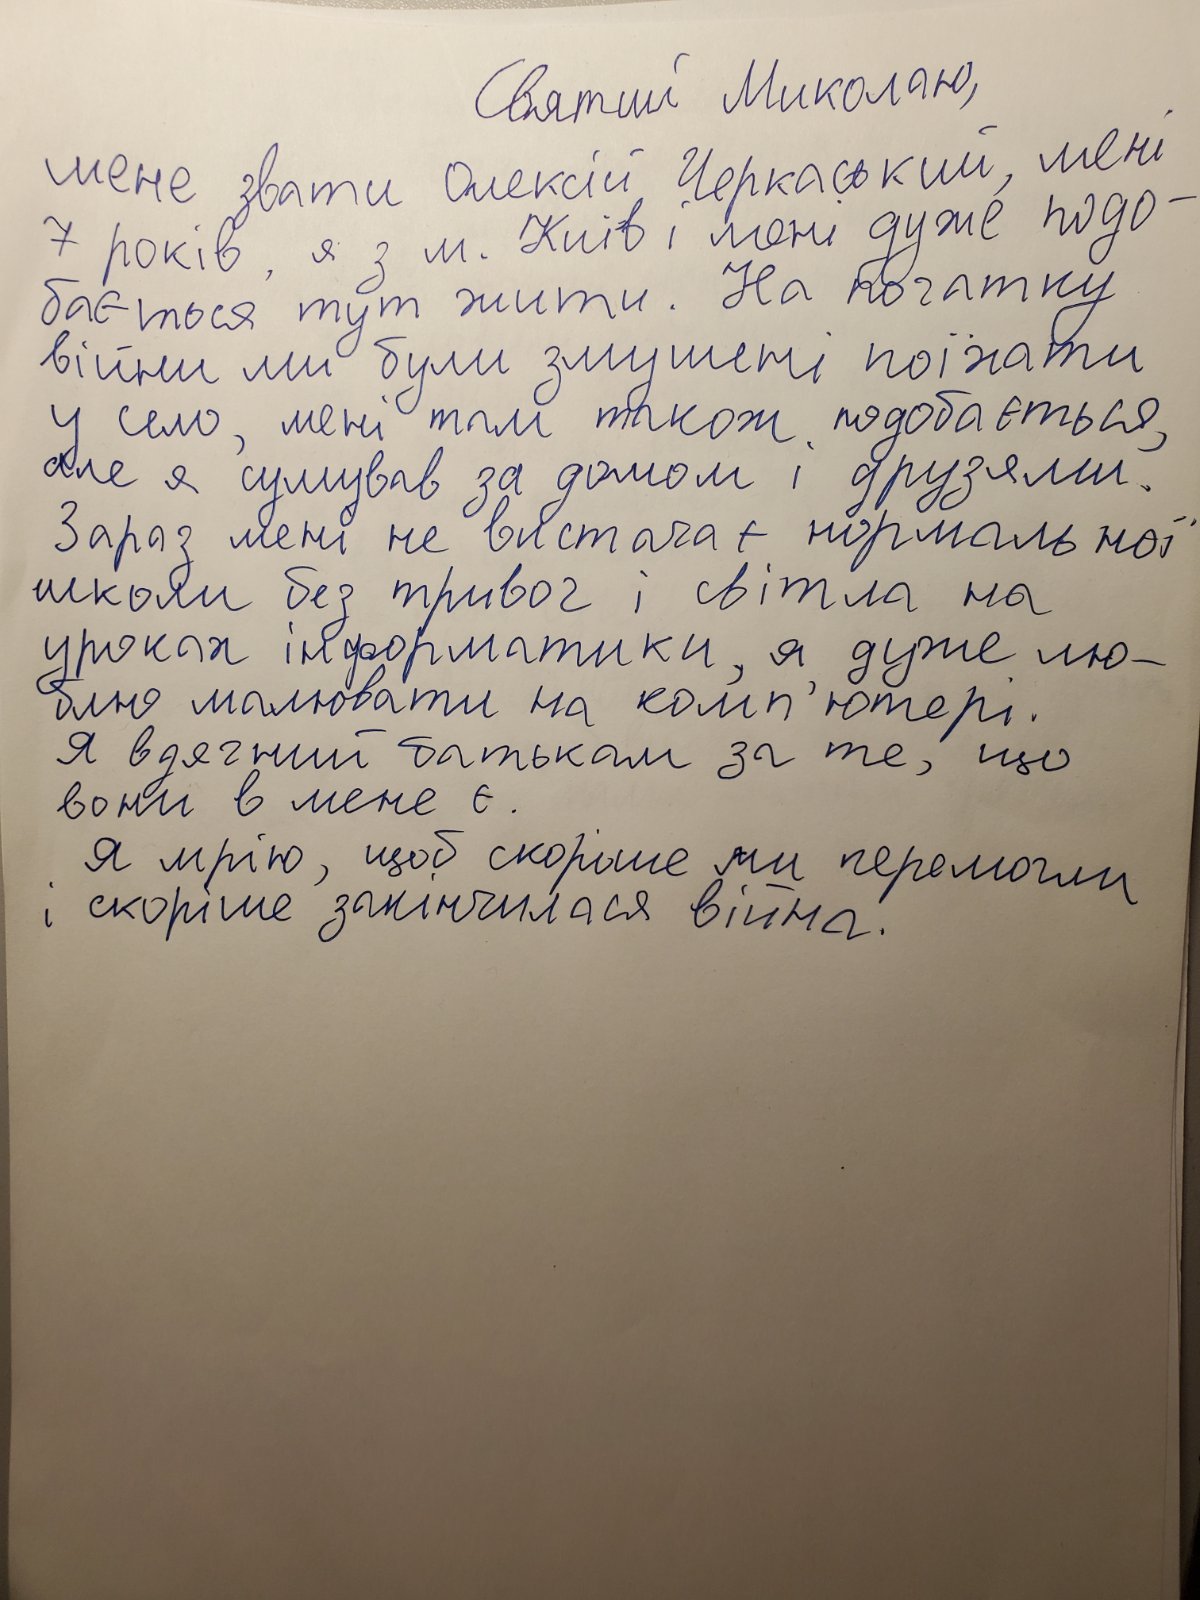 Святий Миколаю,
мене звати Олексій Черкаський, мені
7 років, я з м. Київ і мені дуже подо-
бається тут жити. На початку
війни ми були змушені поїхати
у село, мені там також подобається,
але я сумував за домом і друзями.
Зараз мені не вистачає нормальної
школи без тривог і світла на
уроках інформатики, я дуже лю-
блю малювати на комп'ютері.
Я вдячний батькам за те, що
вони в мене є.
Я мрію, щоб скоріше ми перемогли
і скоріше закінчилася війна.